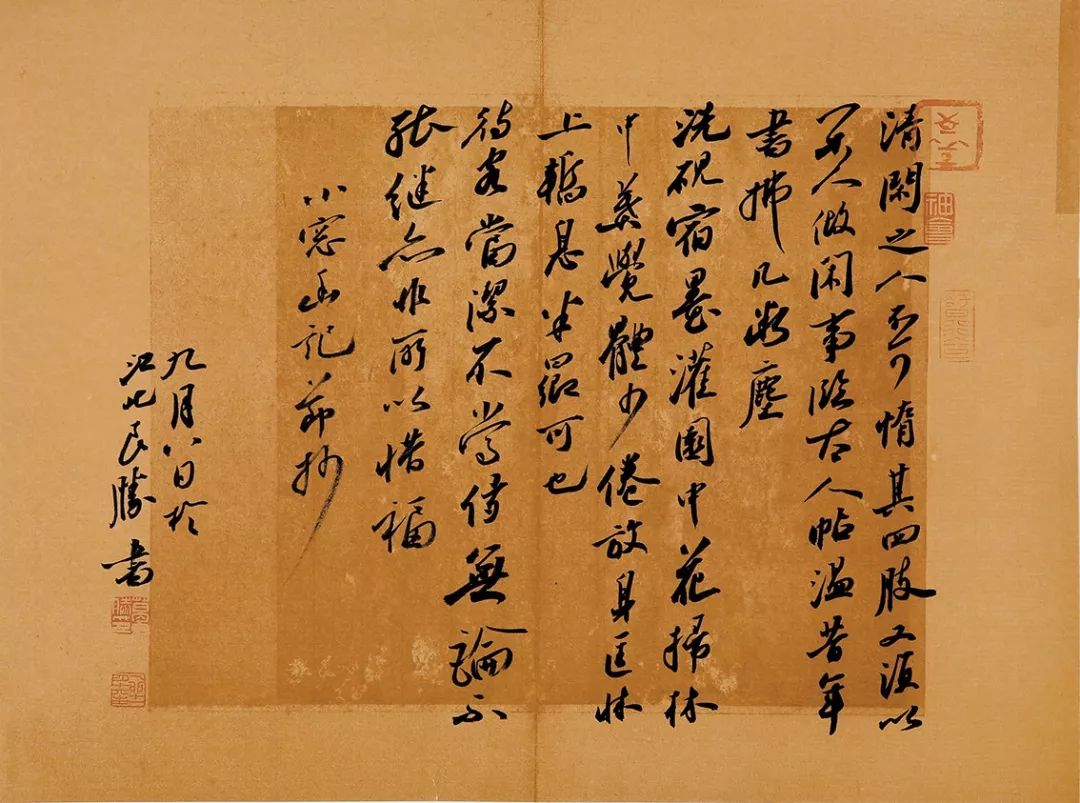 清閑之人不可惰其四肢又須以
闲人做闲事臨古人帖温昔年
書拂几微塵
洗硯宿墨灌園中花掃林
中葉覺體少倦放身匡牀
上暫息半晌可也
待客當潔不當侈無論不
能继亦非所以惜福
小窓幽记節抄
九月八日於
江北良勝書